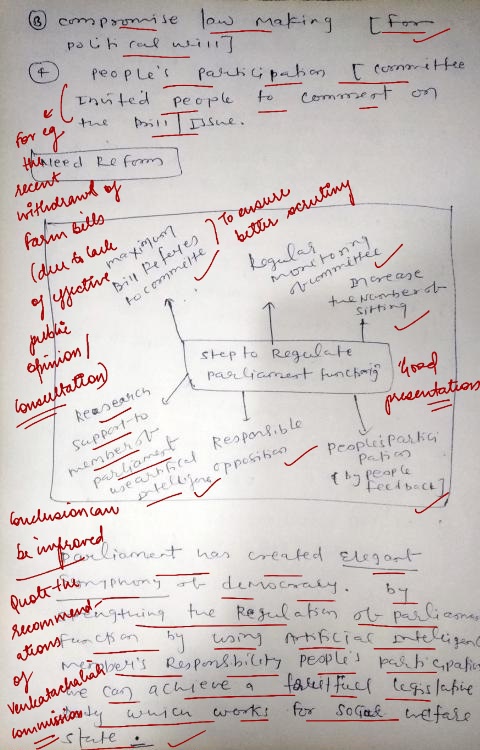 ③ compromise law making [For
political will]
④ people's participation [committee
Invited people to comment on
the Bill / Issue.
For eg
the
recent
withdrawl of
Farm Bills
(due to lack
of effective
public
opinion/
consultation)
Need Reform
maximum
Bill Referes
to committe
To ensure
better scrutiny
Regular
monitoring
of committee
Increase
the number of
sitting
Step to Regulate
parliament functioning
Good
presentation
Research
support to
member of
parliament
use artifical
Intelligens
Responsible
opposition
People's partici
pation
[by people
feedback]
Conclusion can
be improved
Quote the
recommend-
ations
of
Venkatachaliah
commission
parliament has created Elegant
symphony of democracy. by
strengthing the Regulation of parliament
function by using Artificial Intelligenc
member's Responsibility people's participation
we can achieve a legislative
which works for social welfare
state.